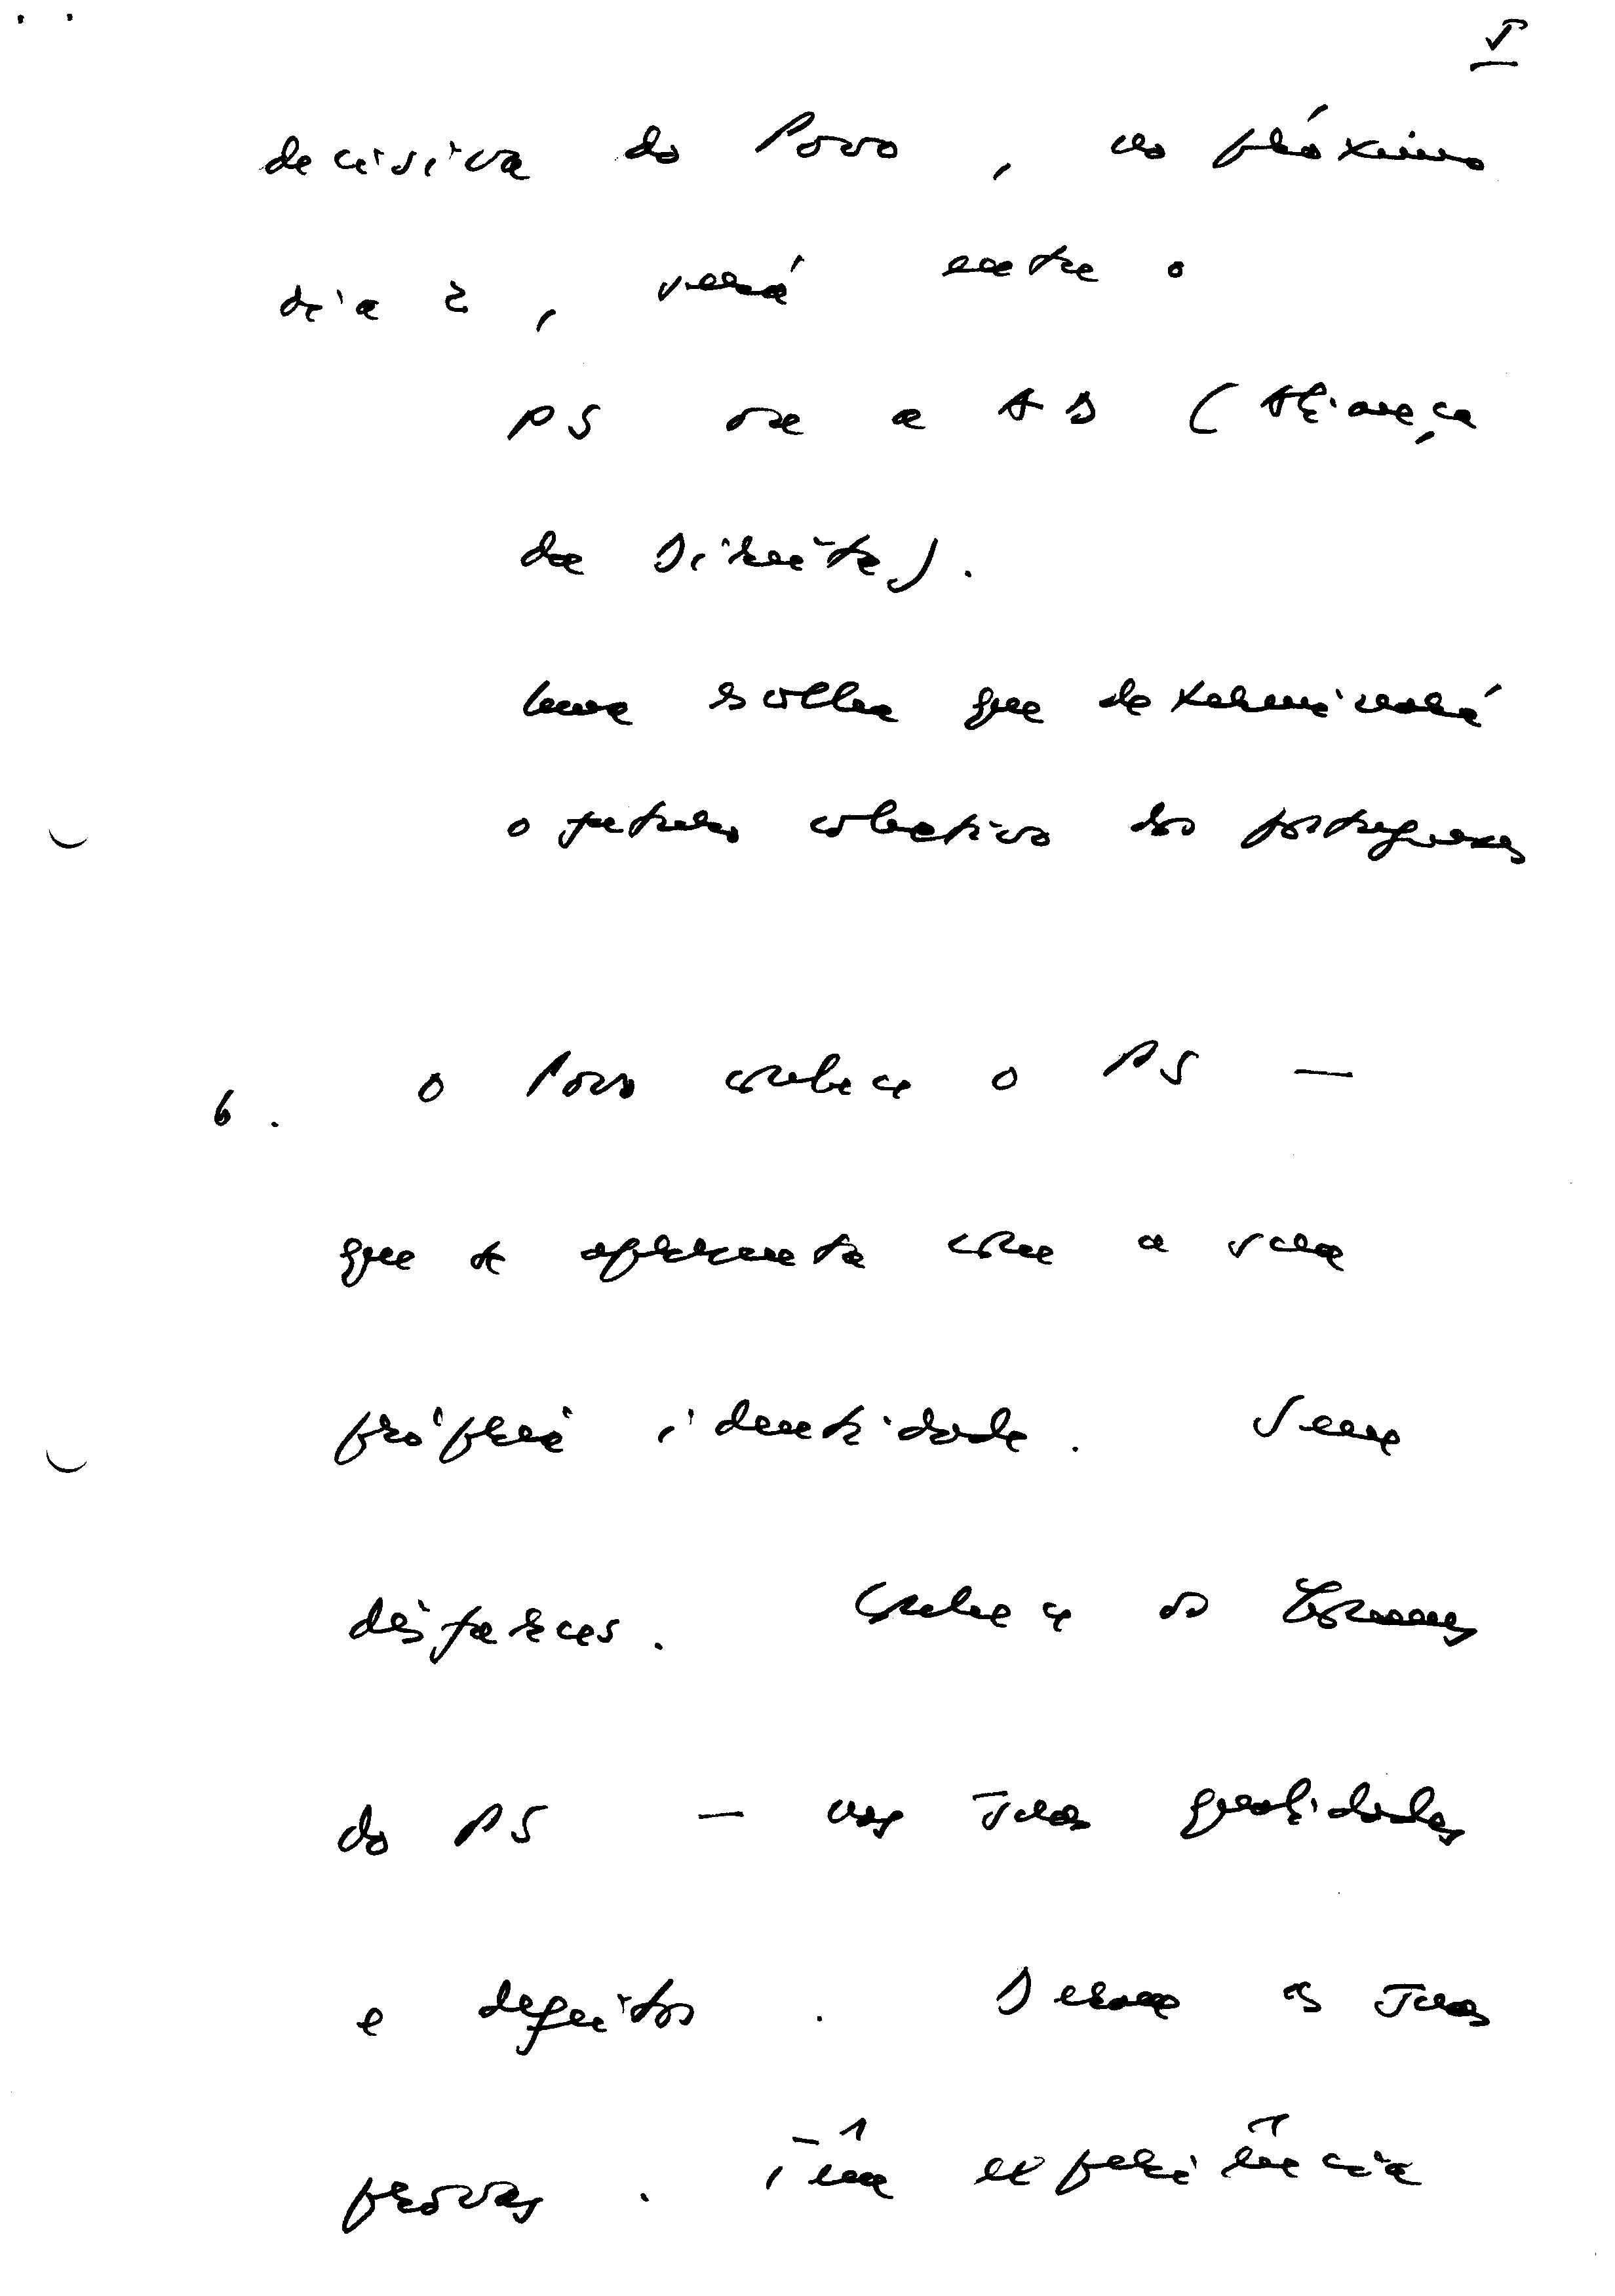 5
decisiva do Povo, no próximo
dia 2, será entre o
PS ou a AD (Aliança
da Direita).
Uma escolha que determinará
o futuro colectivo dos portugueses
6. O Povo conhece o PS —
que se apresenta com a sua
própria identidade. Sem
disfarces. Conhece os Homens
do PS — nas suas qualidades
e defeitos. Deram as suas
provas. Têm experiência